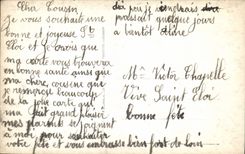 Cher Cousin
Je vous souhaite une
bonne et joyeuse St
Eloi et je crois que
ma carte vous trouvera
en bonne santé ainsi que
ma chère cousine que
je remercie beaucoup
de la jolie carte qui
m'a fait grand plaisir
mes parents se joignent
à moi pour souhaiter
votre fête et vous embrasse bien fort de loin
si peu je viendrais
pendant quelque jours
a bientôt
Mr Victor Chapelle
Vive Saint Eloi
bonne fête